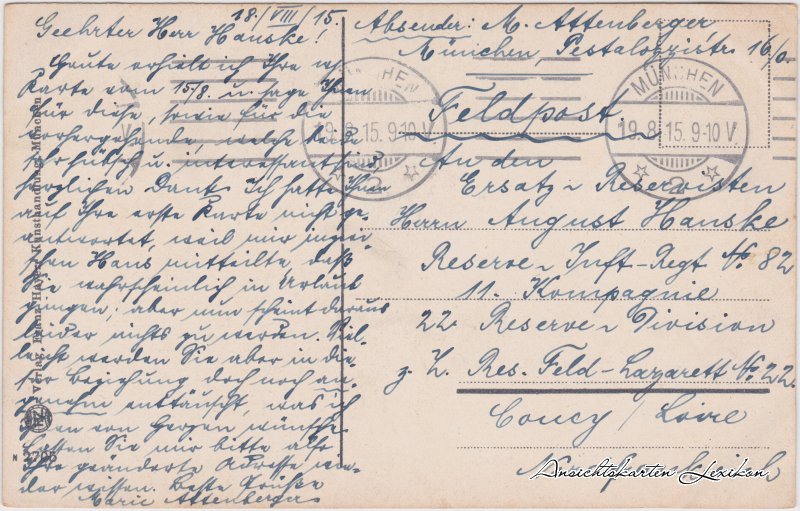 18./VIII./15.
Geehrter Herr Hanske!
Heute erhielt ich Ihre w.
Karte vom 15./8. u. sage Ihnen
für diese, sowie für die
vorhergehende, welche beide
sehr hübsch u. interessant sind
herzlichen Dank. Ich hatte Ihnen
auf Ihre erste Karte nicht ge-
antwortet, weil mir inzwi-
schen Hans mitteilte, daß
Sie wahrscheinlich in Urlaub
gingen; aber nun scheint daraus
leider nichts zu werden. Viel-
leicht werden Sie aber in die-
ser Beziehung doch noch an-
genehm enttäuscht, was ich
Ihnen von Herzen wünsche.
Lassen Sie mir bitte
Ihre geänderte Adresse wie-
der wissen. Beste Grüße
Marie Attenberger
Absender: M. Attenberger
München, Pestalozzistr. 16/0
Feldpost.
An den
Ersatz-Reservisten
Herrn August Hanske
Reserve-Inft-Regt No. 82
11. Kompagnie
22. Reserve-Division
z. Z. Res. Feld-Lazarett No. 22.
Coucy/Loire
MÜNCHEN
19.8.15.9-10V
2
MÜNCHEN
19.8.15.9-10V
2
Verlag Franz Kunsthandlung, München
Ansichtskarten Lexikon